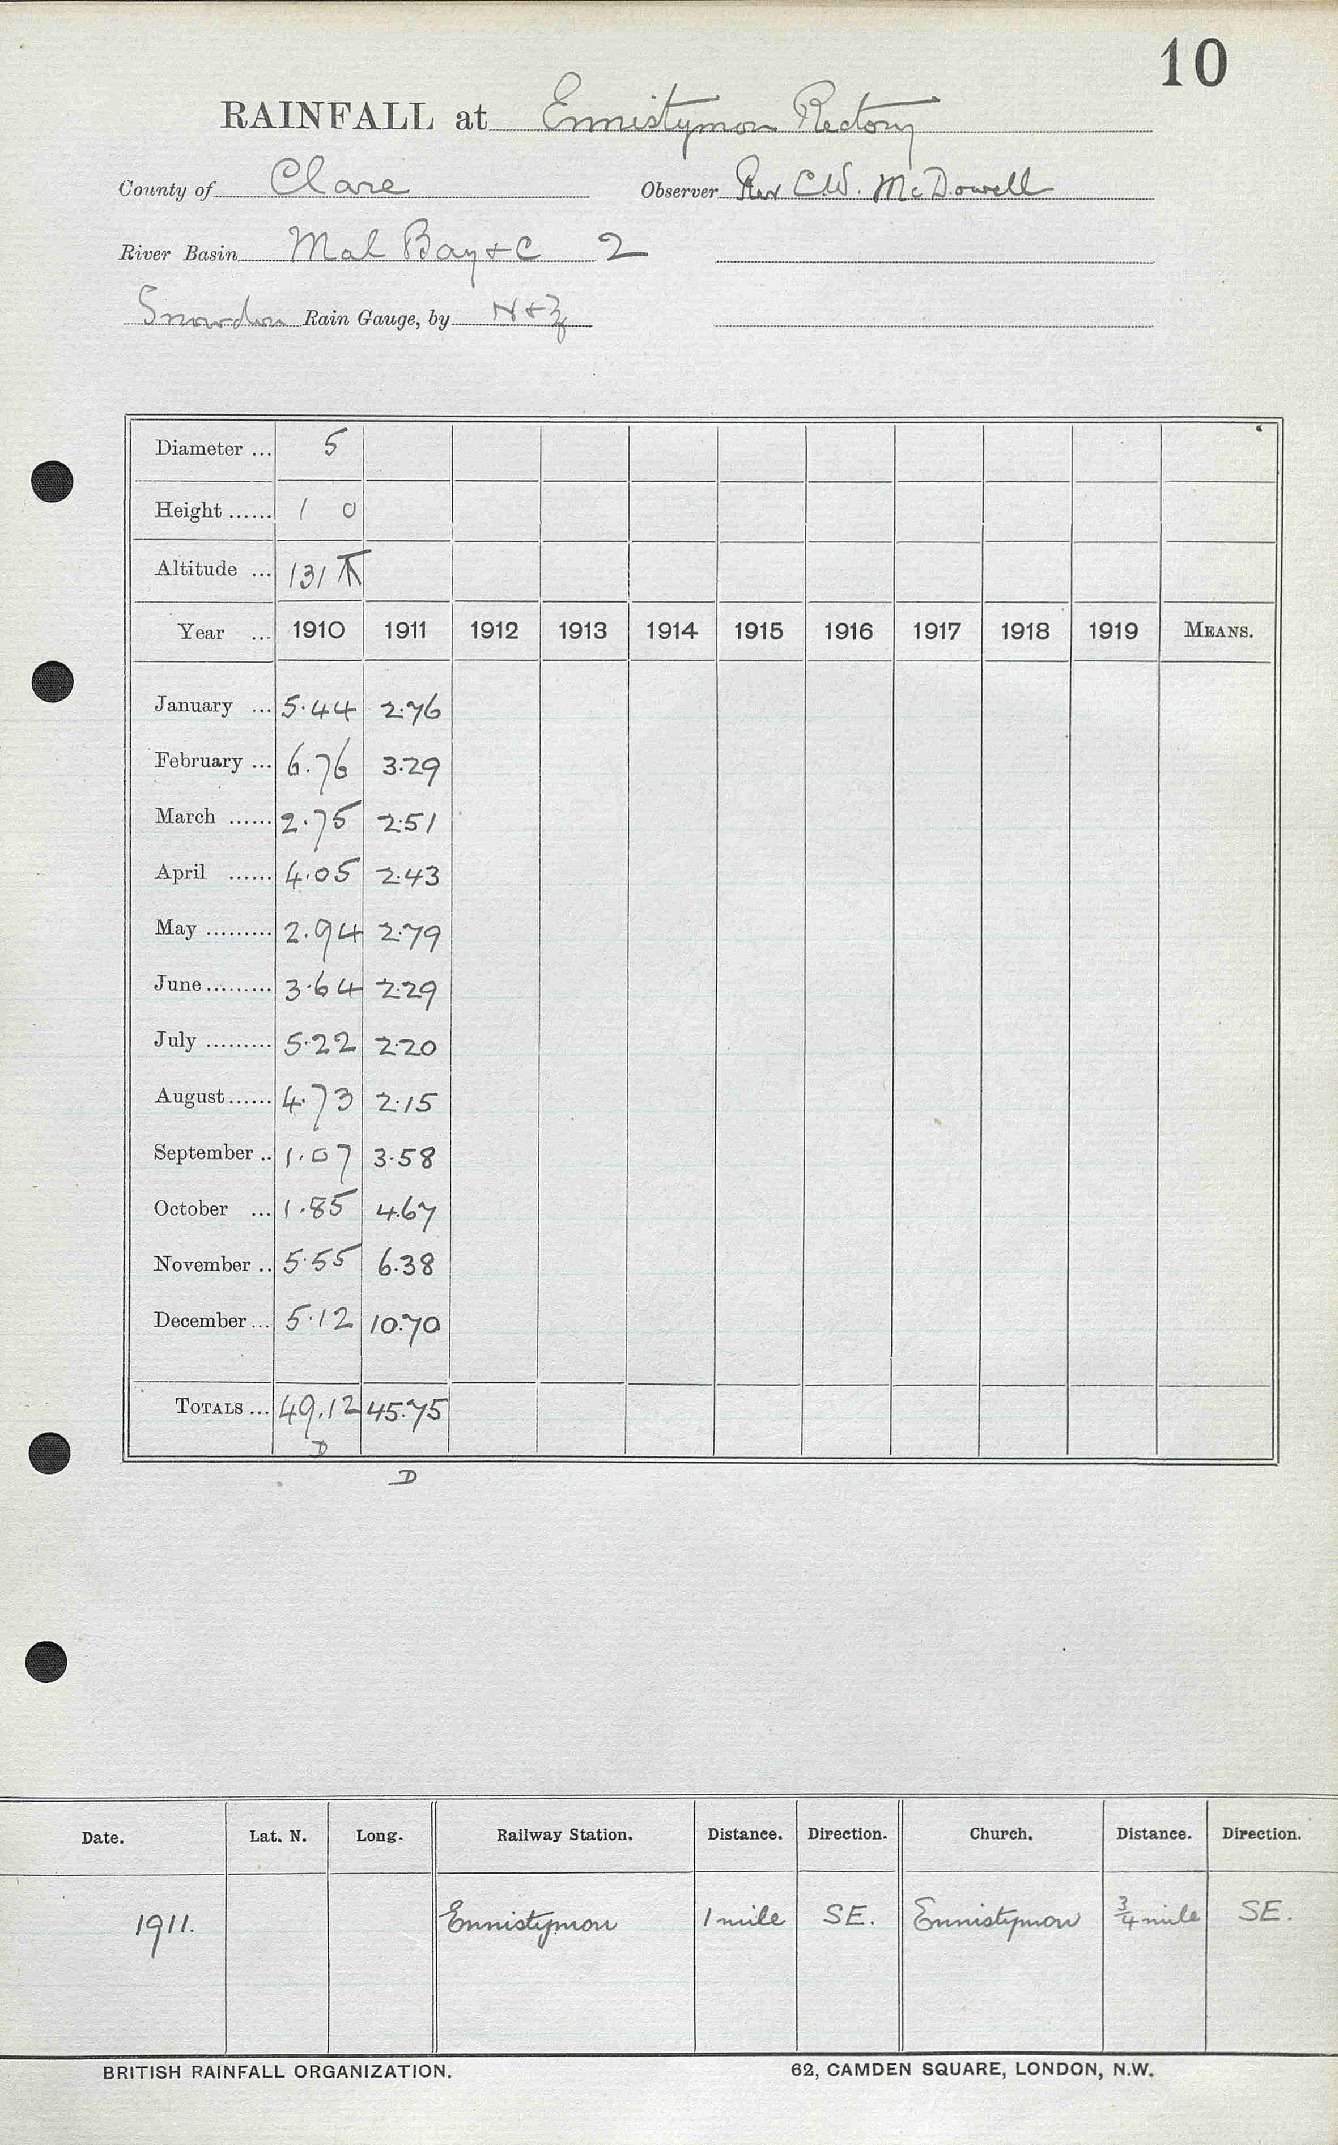 10
RAINFALL at Ennistymon Rectory
County of Clare Observer Rev C.W. McDowell
River Basin Mal Bay &c 2
Snowdon Rain Gauge, by N & Z
Diameter ... 5
Height ...... 1 0
Altitude ... 131
Year ... 1910 1911 1912 1913 1914 1915 1916 1917 1918 1919 MEANS.
January ... 5.44 2.76
February ... 6.76 3.29
March ...... 2.75 2.51
April ...... 4.05 2.43
May ......... 2.94 2.79
June ......... 3.64 2.29
July ......... 5.22 2.20
August ...... 4.73 2.15
September .. 1.07 3.58
October ... 1.85 4.67
November .. 5.55 6.38
December ... 5.12 10.70
TOTALS ... 49.12 45.75
D
D
Date. Lat. N. Long. Railway Station. Distance. Direction. Church. Distance. Direction.
1911. Ennistymon 1 mile SE. Ennistymon 3/4 mile SE.
BRITISH RAINFALL ORGANIZATION. 62, CAMDEN SQUARE, LONDON, N.W.